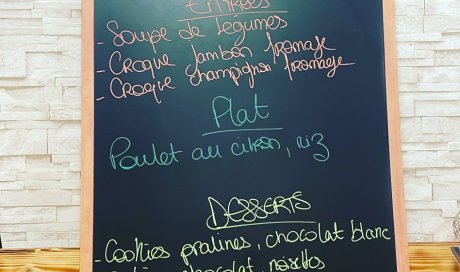 Entrées
- Soupe de légumes
- Croque jambon fromage
- Croque champignon fromage
Plat
Poulet au citron, riz
DESSERTS
- Cookies pralines, chocolat blanc
chocolat, noisettes